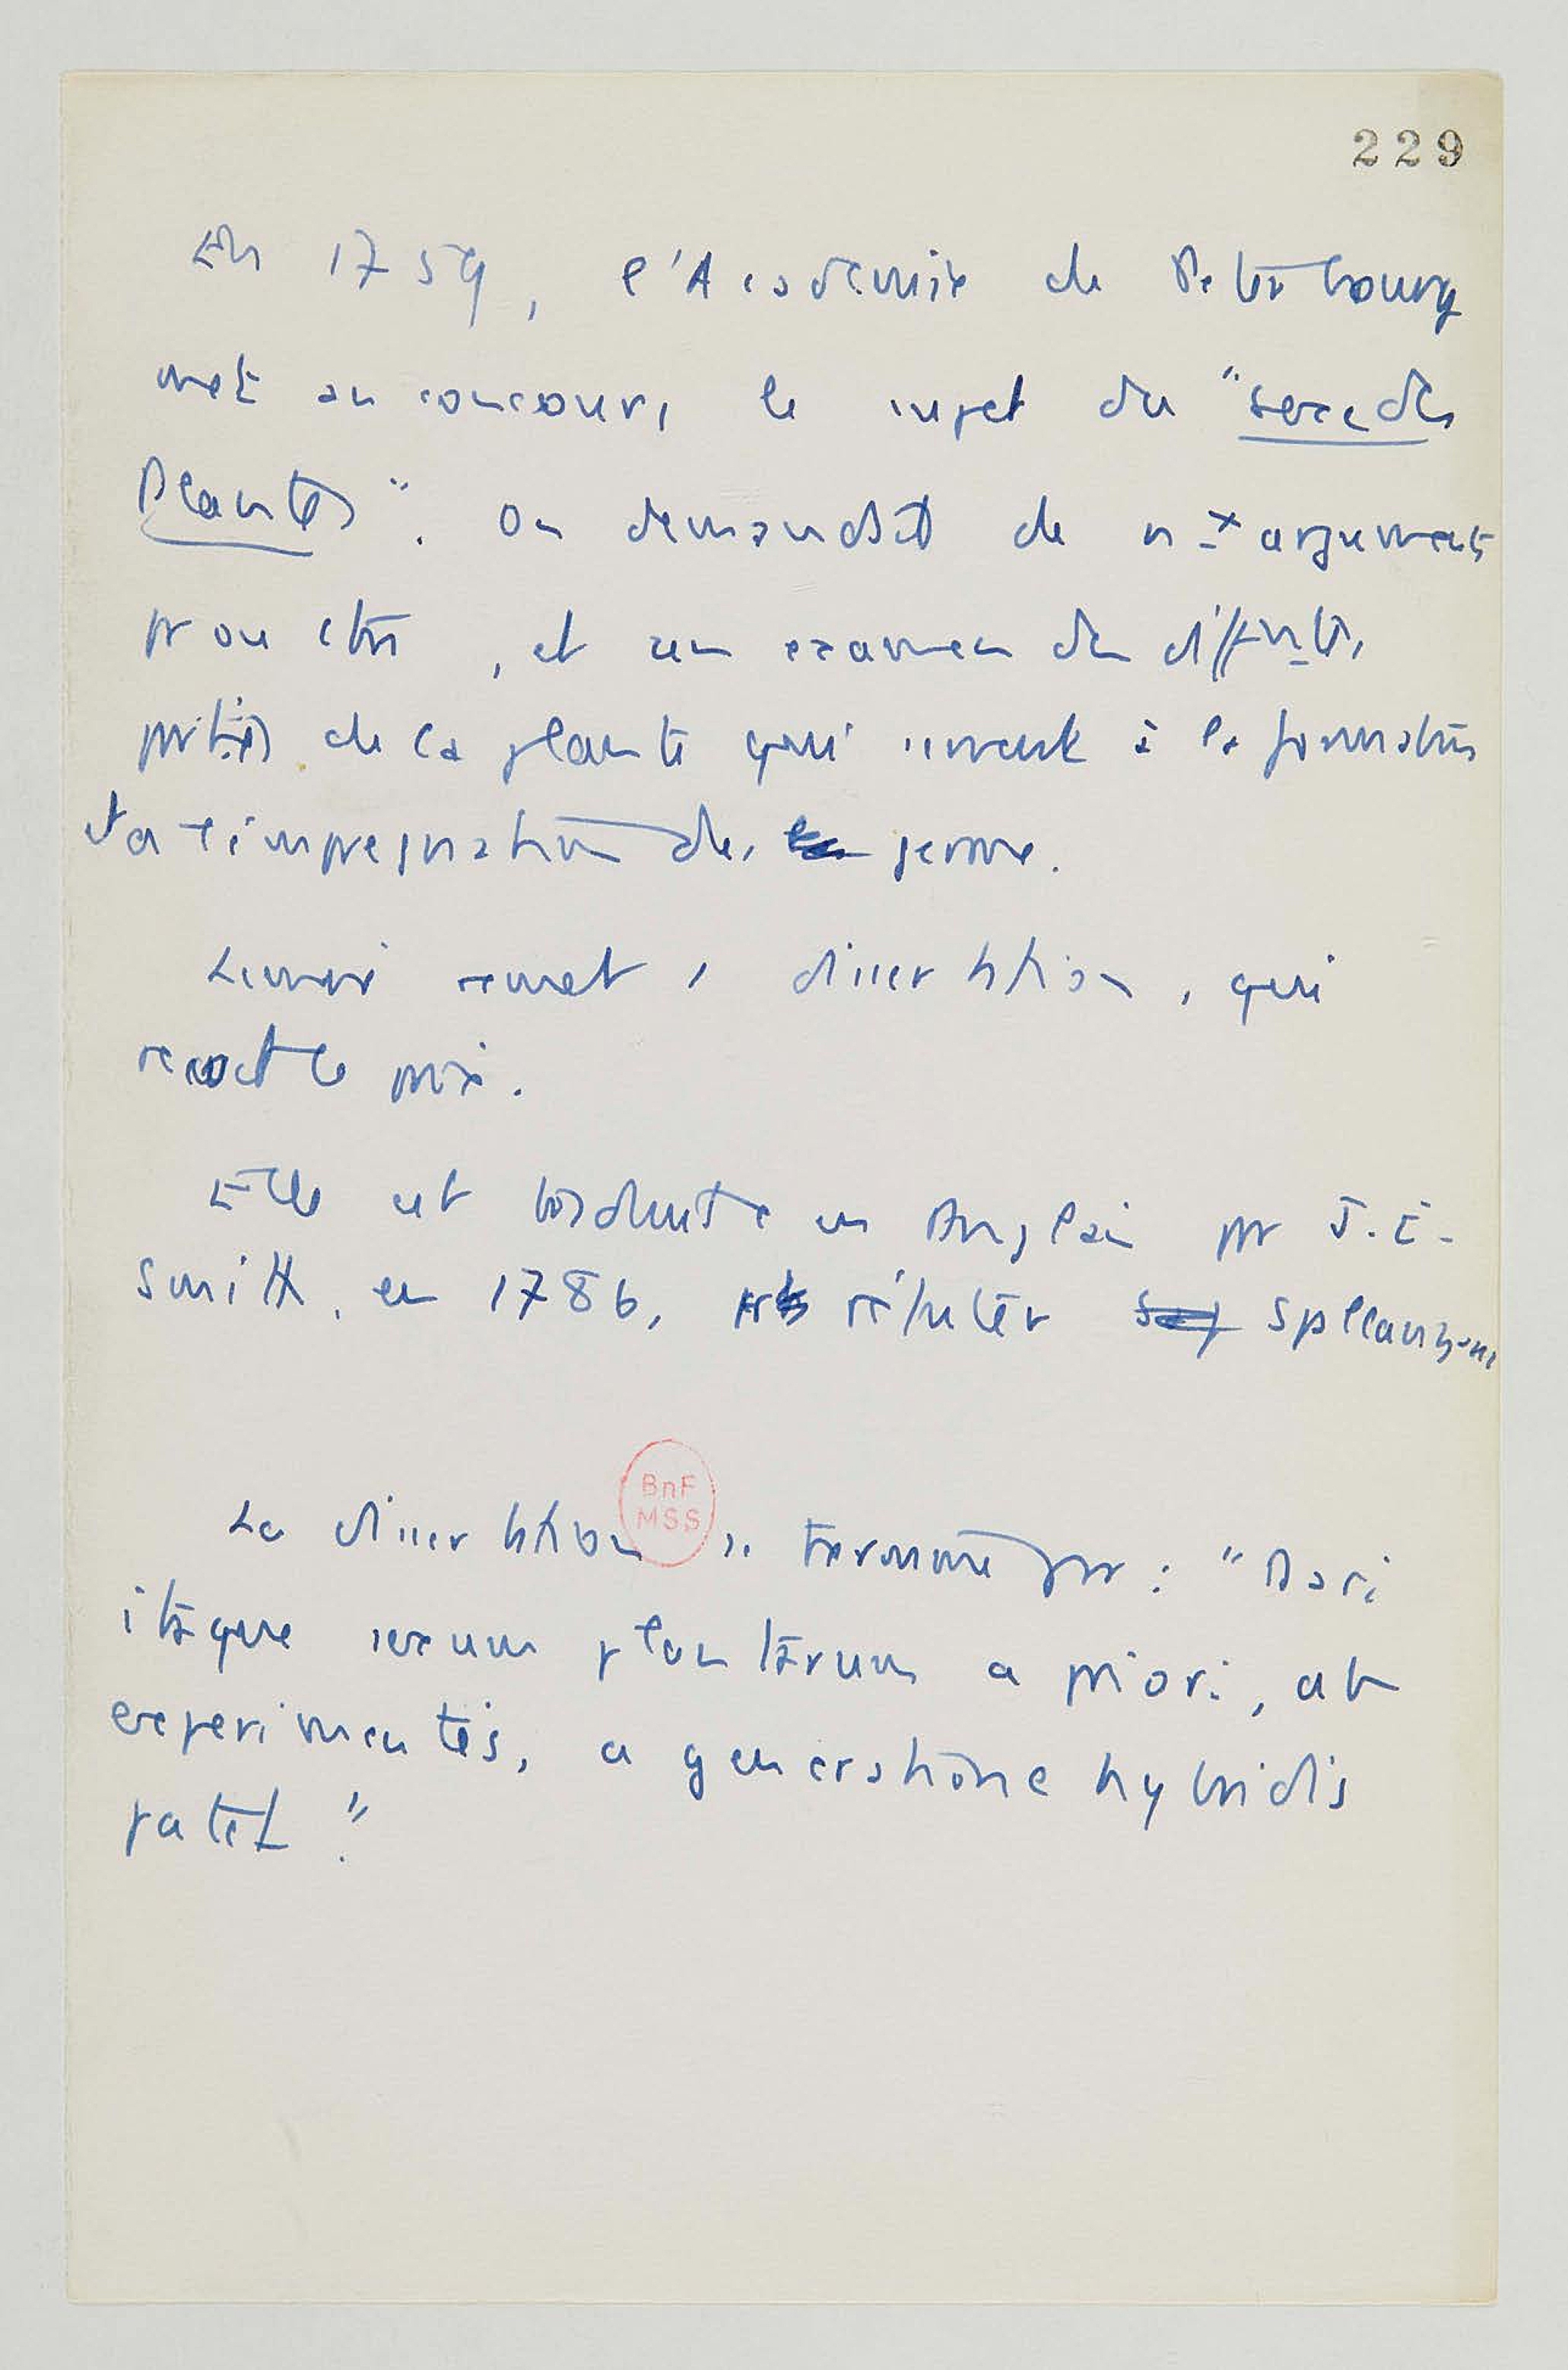 229
En 1759, l'Academie de Petersbourg
met au concours le sujet du "sexe des
Plantes". On demandait de nx arguments
pr ou ctre, et un examen des diffentes
prties de la plante qui servent à la formation
et a l'impregnation des germe.
Linné remet 1 dissertation, qui
recoit le prix.
Elle est traduite en Anglais pr J. E.
Smith, en 1786, réfuter Spllanzani
La dissertation se termine pr : "Dari
BnF
MSS
itaque sexum plantarum a priori, ab
experimentis, a generatione hybridis
patet".